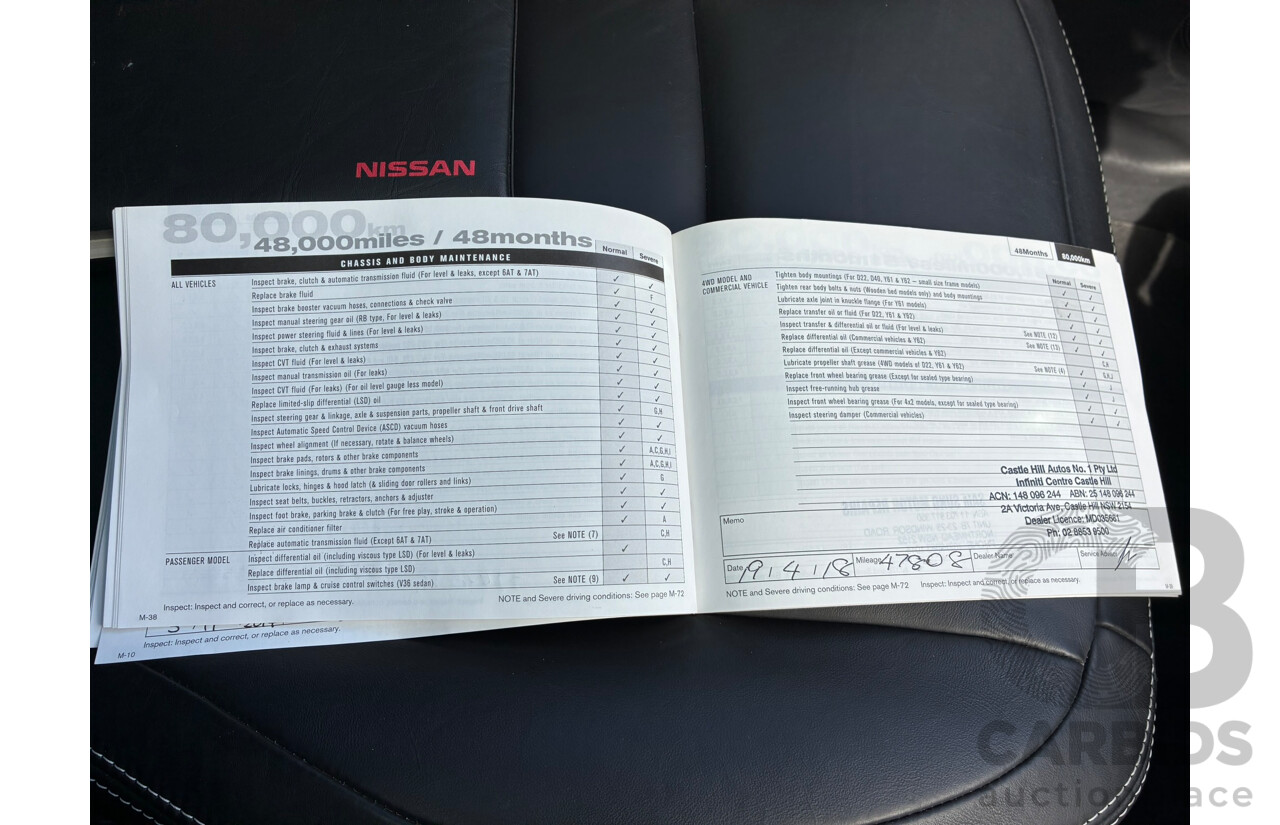 NISSAN
80,000km
48,000miles / 48months
CHASSIS AND BODY MAINTENANCE
Normal
Severe
ALL VEHICLES
Inspect brake, clutch & automatic transmission fluid (For level & leaks, except 6AT & 7AT) ✓ ✓
Replace brake fluid ✓ F
Inspect brake booster vacuum hoses, connections & check valve ✓ ✓
Inspect manual steering gear oil (RB type, For level & leaks) ✓ ✓
Inspect power steering fluid & lines (For level & leaks) ✓ ✓
Inspect brake, clutch & exhaust systems ✓ ✓
Inspect CVT fluid (For level & leaks) ✓ ✓
Inspect manual transmission oil (For leaks) ✓ ✓
Inspect CVT fluid (For leaks) (For oil level gauge less model) ✓ ✓
Replace limited-slip differential (LSD) oil ✓ G,H
Inspect steering gear & linkage, axle & suspension parts, propeller shaft & front drive shaft ✓ ✓
Inspect Automatic Speed Control Device (ASCD) vacuum hoses ✓ ✓
Inspect wheel alignment (If necessary, rotate & balance wheels) ✓ A,C,G,H,I
Inspect brake pads, rotors & other brake components ✓ A,C,G,H,I
Inspect brake linings, drums & other brake components ✓ G
Lubricate locks, hinges & hood latch (& sliding door rollers and links) ✓ ✓
Inspect seat belts, buckles, retractors, anchors & adjuster ✓ ✓
Inspect foot brake, parking brake & clutch (For free play, stroke & operation) ✓ A
Replace air conditioner filter
Replace automatic transmission fluid (Except 6AT & 7AT) See NOTE (7) C,H
PASSENGER MODEL
Inspect differential oil (including viscous type LSD) (For level & leaks) ✓
Replace differential oil (including viscous type LSD) C,H
Inspect brake lamp & cruise control switches (V36 sedan) See NOTE (9) ✓ ✓
Inspect: Inspect and correct, or replace as necessary.
NOTE and Severe driving conditions: See page M-72
M-38
Inspect: Inspect and correct, or replace as necessary.
M-10
48Months
80,000km
Normal
Severe
4WD MODEL AND
COMMERCIAL VEHICLE
Tighten body mountings (For D22, D40, Y61 & Y62 – small size frame models)
Tighten rear body bolts & nuts (Wooden bed models only) and body mountings
Lubricate axle joint in knuckle flange (For Y61 models)
Replace transfer oil or fluid (For D22, Y61 & Y62)
Inspect transfer & differential oil or fluid (For level & leaks)
Replace differential oil (Commercial vehicles & Y62) See NOTE (12)
Replace differential oil (Except commercial vehicles & Y62) See NOTE (13)
Lubricate propeller shaft grease (4WD models of D22, Y61 & Y62)
Replace front wheel bearing grease (Except for sealed type bearing) See NOTE (4)
Inspect free-running hub grease
Inspect front wheel bearing grease (For 4x2 models, except for sealed type bearing)
Inspect steering damper (Commercial vehicles)
Castle Hill Autos No. 1 Pty Ltd
Infiniti Centre Castle Hill
ACN: 148 098 244 ABN: 25 148 098 244
2A Victoria Ave, Castle Hill NSW 2154
Dealer Licence: MD036661
Ph: 02 8853 9500
Memo
Date 19/4/18 Mileage 47808 Dealer Name Service Advisor
NOTE and Severe driving conditions: See page M-72 Inspect: Inspect and correct, or replace as necessary.
CARBIDS
auction place